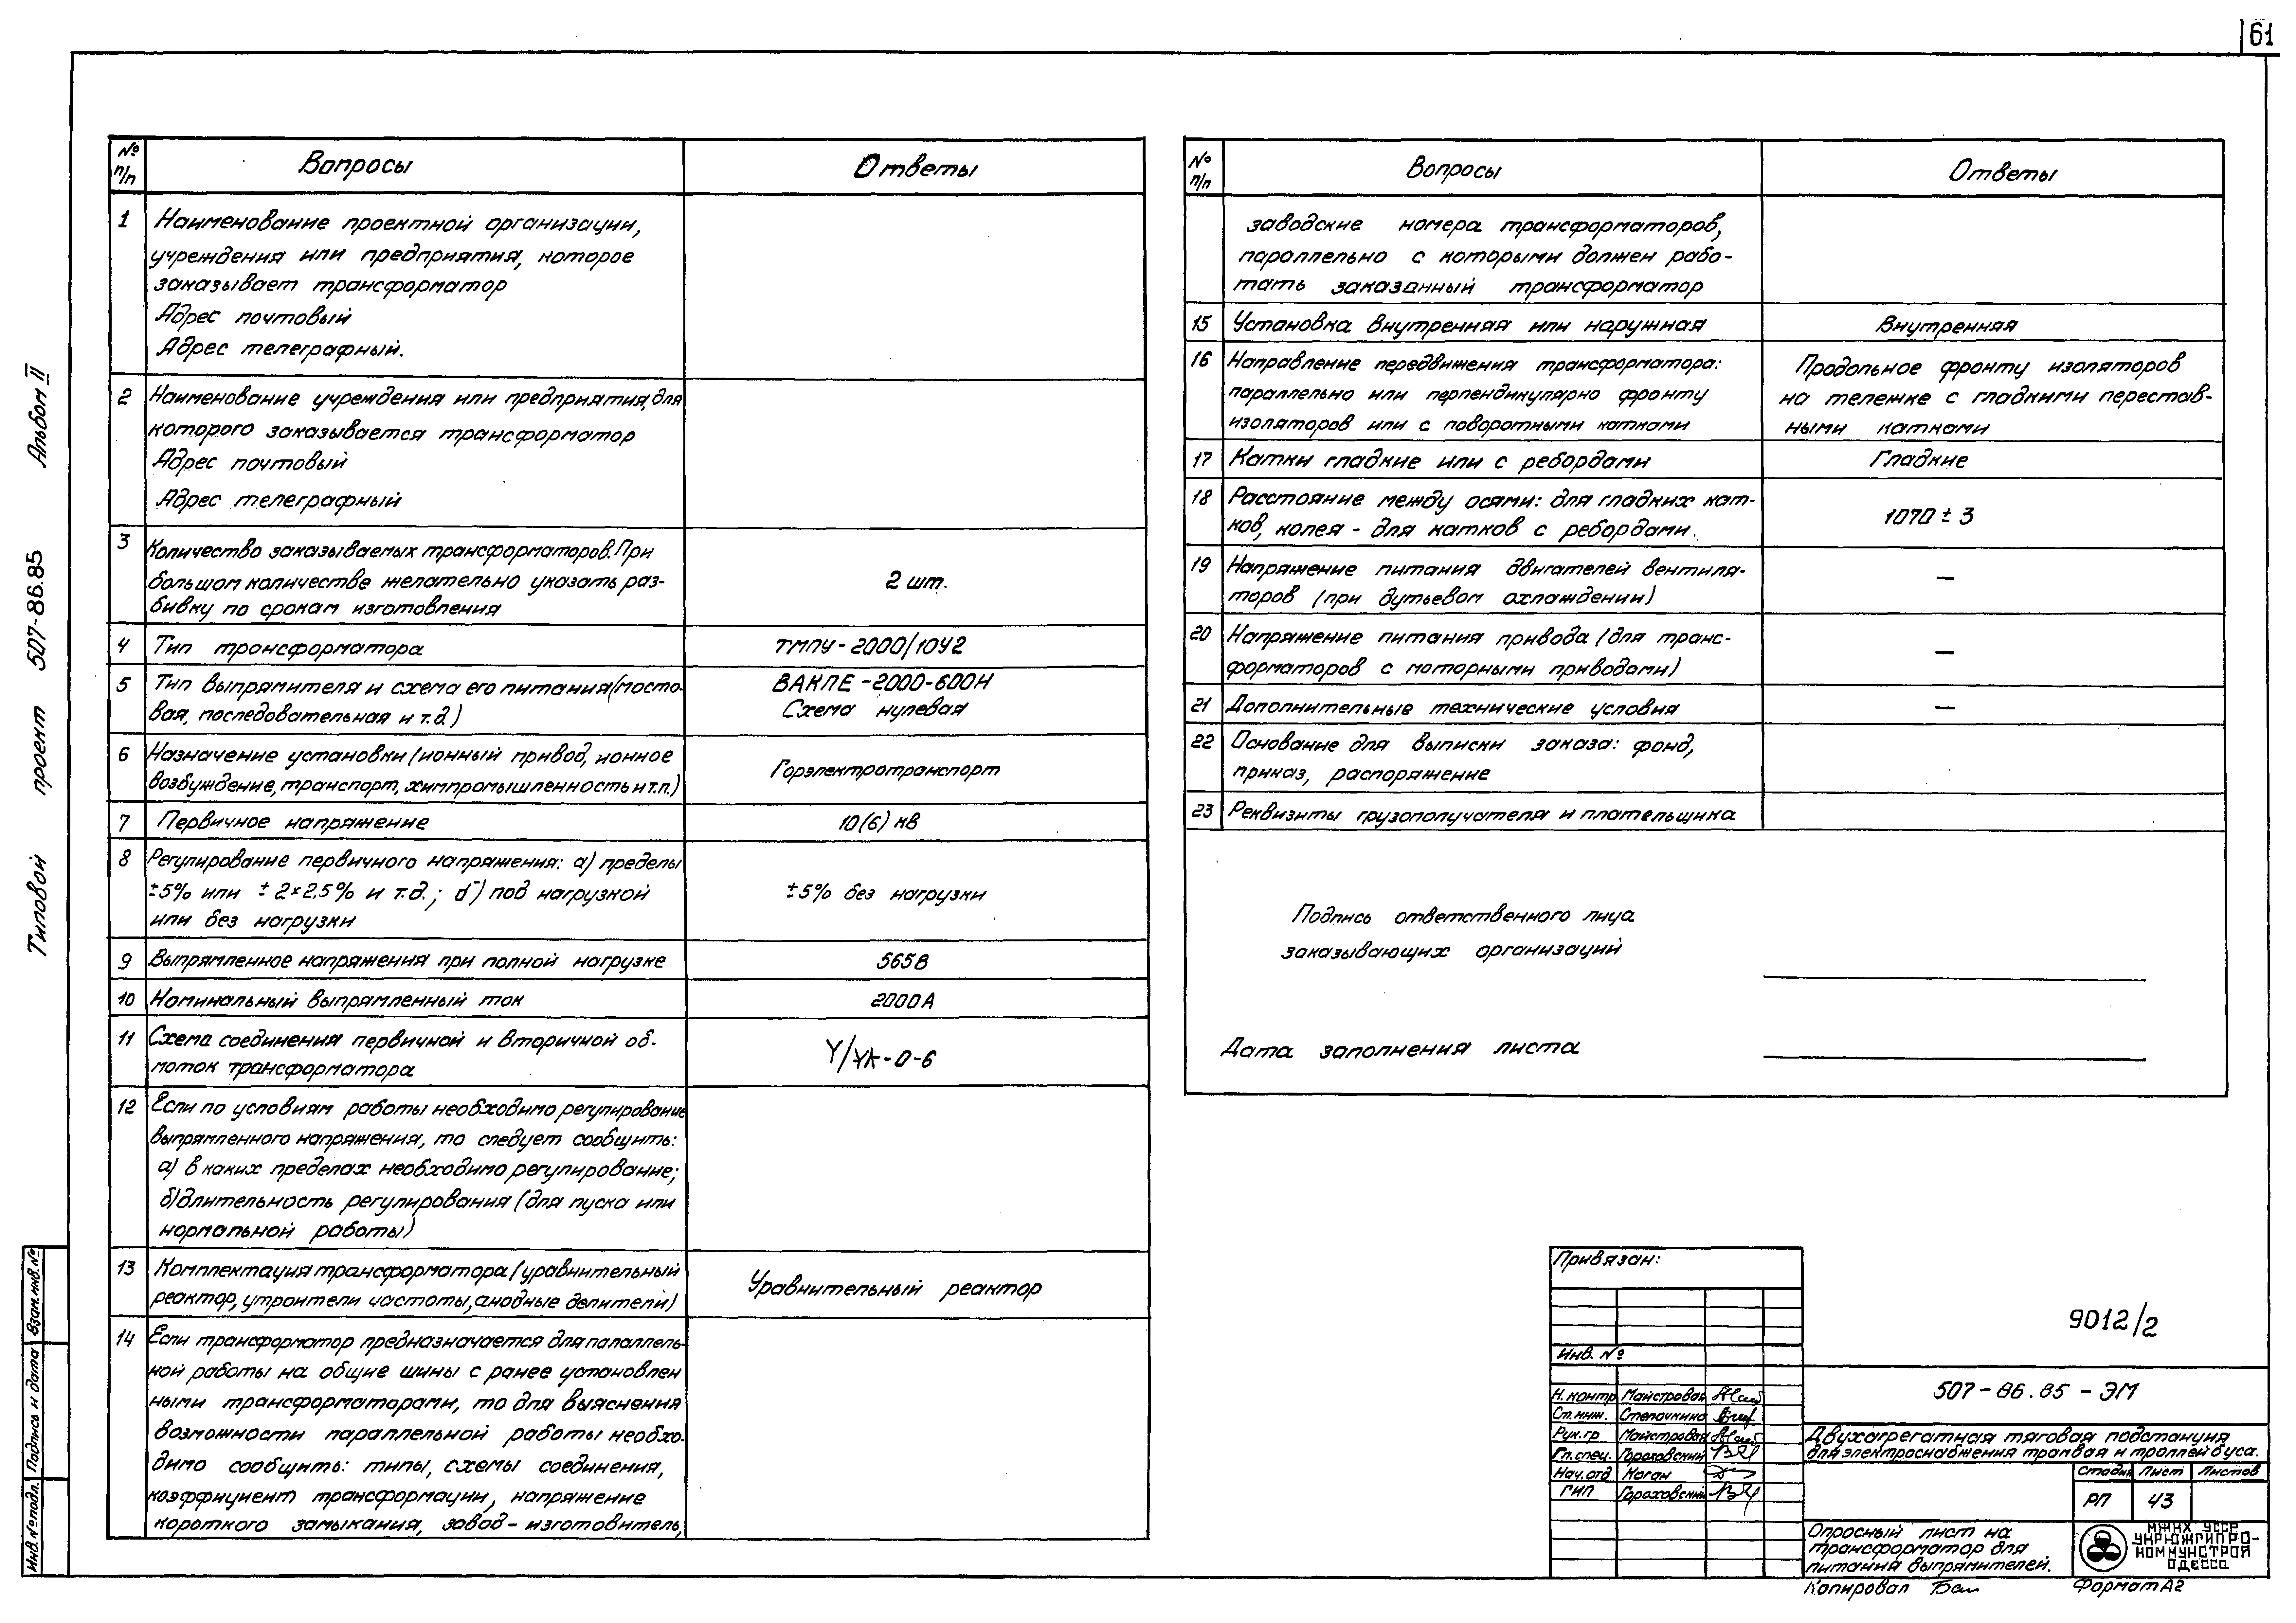 61
Типовой проект 507-86.85 Альбом II
№ п/п Вопросы Ответы
1 Наименование проектной организации,
учреждения или предприятия, которое
заказывает трансформатор
Адрес почтовый
Адрес телеграфный.
2 Наименование учреждения или предприятия, для
которого заказывается трансформатор
Адрес почтовый
Адрес телеграфный
3 Количество заказываемых трансформаторов. При
большом количестве желательно указать раз-
бивку по срокам изготовления
2 шт.
4 Тип трансформатора ТМПУ-2000/10У2
5 Тип выпрямителя и схема его питания (мосто-
вая, последовательная и т.д.)
ВАКЛЕ-2000-600Н
Схема нулевая
6 Назначение установки (ионный привод, ионное
возбуждение, транспорт, химпромышленность и т.п.)
Горэлектротранспорт
7 Первичное напряжение 10(6) кв
8 Регулирование первичного напряжения: а) пределы
±5% или ±2×2,5% и т.д.; б) под нагрузкой
или без нагрузки
±5% без нагрузки
9 Выпрямленное напряжения при полной нагрузке 565В
10 Номинальный выпрямленный ток 2000А
11 Схема соединения первичной и вторичной об-
моток трансформатора
12 Если по условиям работы необходимо регулирование
выпрямленного напряжения, то следует сообщить:
а) в каких пределах необходимо регулирование;
б) длительность регулирования (для пуска или
нормальной работы)
13 Комплектация трансформатора (уравнительный
реактор, утроители частоты, анодные делители)
Уравнительный реактор
14 Если трансформатор предназначается для папаллель-
ной работы на общие шины с ранее установлен
ными трансформаторами, то для выяснения
возможности параллельной работы необхо-
димо сообщить: типы, схемы соединения,
коэффициент трансформации, напряжение
короткого замыкания, завод-изготовитель,
№ п/п Вопросы Ответы
заводские номера трансформаторов,
параллельно с которыми должен рабо-
тать заказанный трансформатор
15 Установка внутренняя или наружная Внутренняя
16 Направление передвижения трансформатора:
параллельно или перпендикулярно фронту
изоляторов или с поворотными катками
Продольное фронту изоляторов
на тележке с гладкими перестав-
ными катками
17 Катки гладкие или с ребордами Гладкие
18 Расстояние между осями: для гладких кат-
ков, колея - для катков с ребордами.
1070 ± 3
19 Напряжение питания двигателей вентиля-
торов (при дутьевом охлаждении)
—
20 Напряжение питания привода (для транс-
форматоров с моторными приводами)
—
21 Дополнительные технические условия —
22 Основание для выписки заказа: фонд,
приказ, распоряжение
23 Реквизиты грузополучателя и плательщика
Подпись ответственного лица
заказывающих организаций
Дата заполнения листа
Привязан:
Инв. №
9012/2
Н. контр Майстровая
Ст. инж. Степочкина
Рук. гр Майстровая
Гл. спец. Гороховский
Нач. отд Коган
ГИП Гороховский
507-86.85-ЭМ
Двухагрегатная тяговая подстанция
для электроснабжения трамвая и троллейбуса.
Стадия Лист Листов
РП 43
Опросный лист на
трансформатор для
питания выпрямителей.
МЖКХ УССР
УКРЮЖГИПРО-
КОММУНСТРОЙ
ОДЕССА
Копировал Формат А2
Инв. № подл. Подпись и дата Взам. инв. №